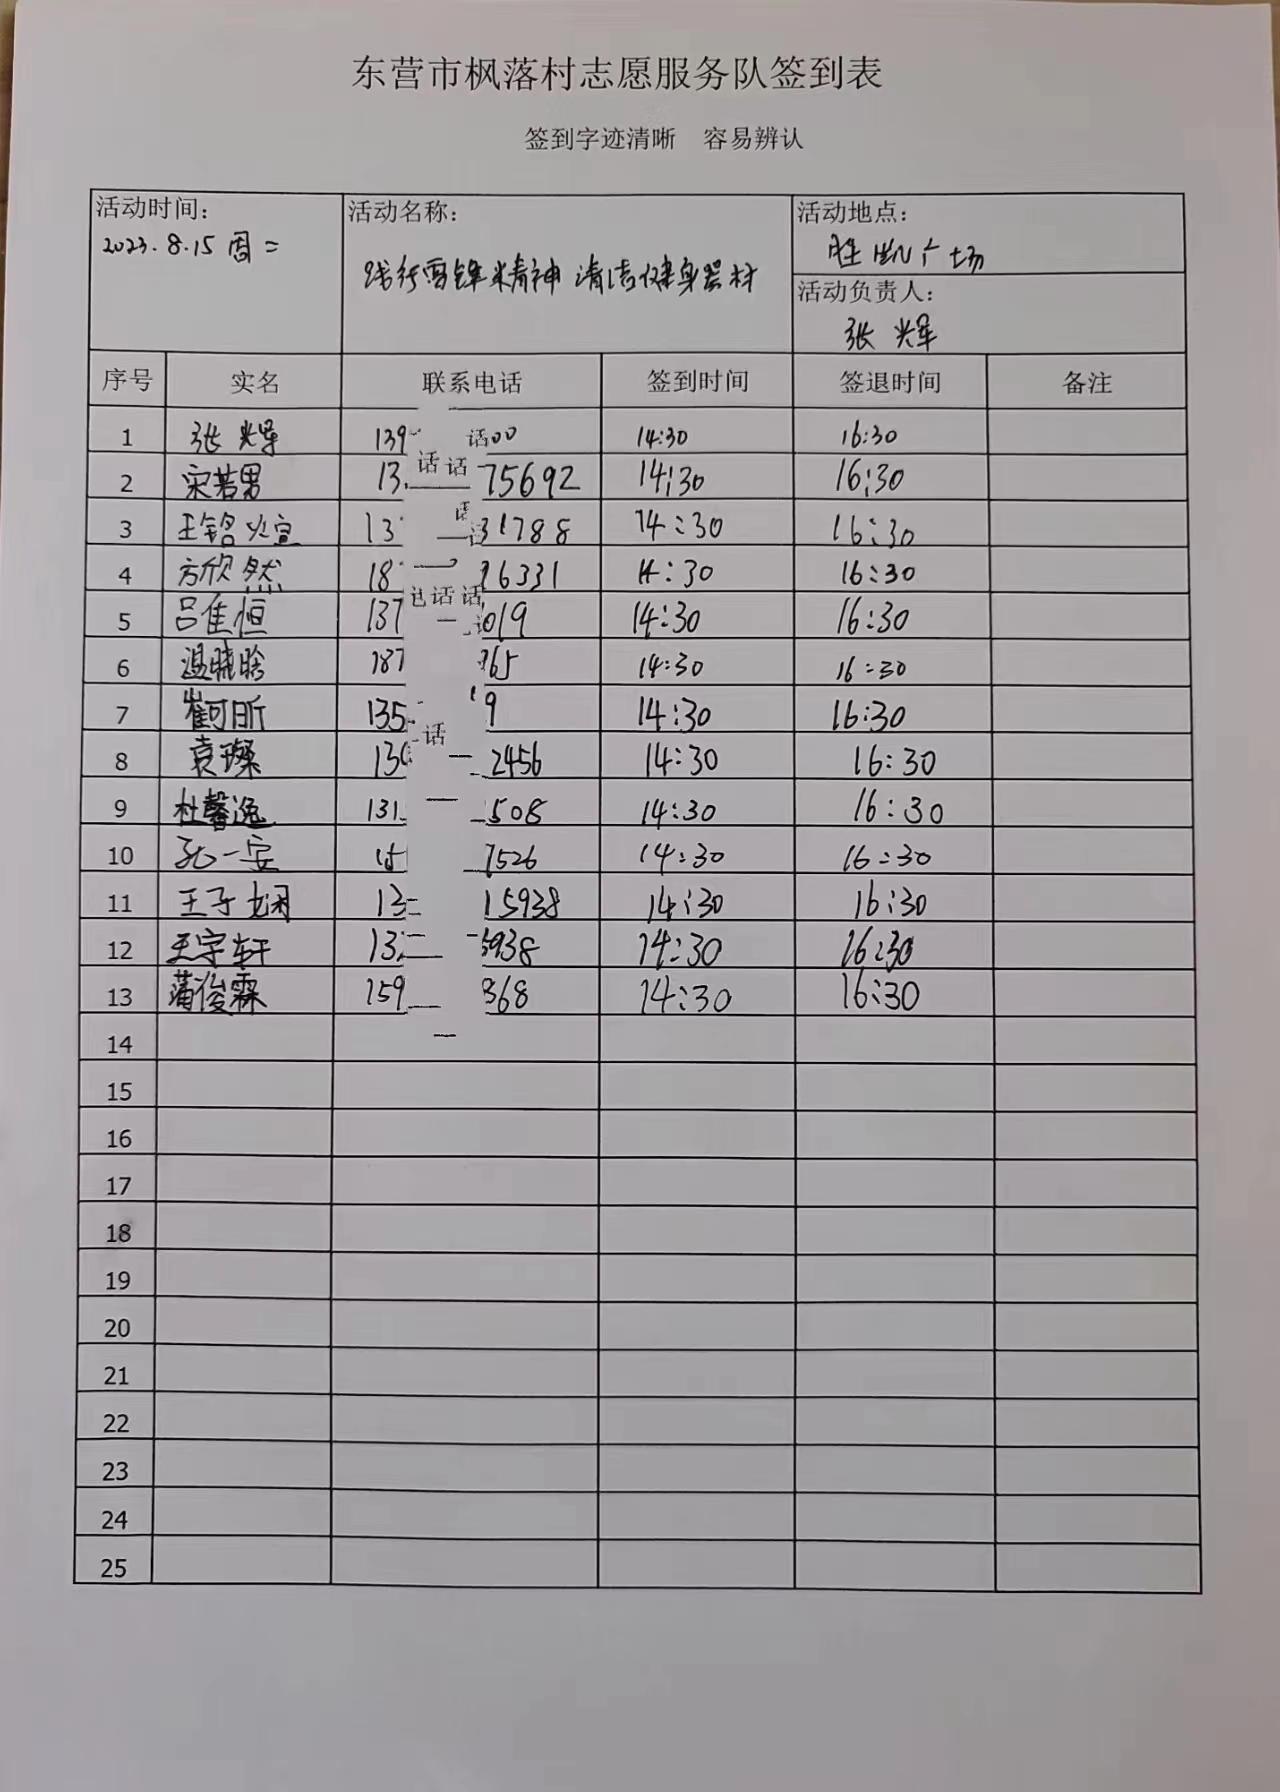 东营市枫落村志愿服务队签到表
签到字迹清晰 容易辨认
活动时间:
2023.8.15 周二
活动名称:
践行雷锋精神 清洁健身器材
活动地点:
胜凯广场
活动负责人:
张辉
序号 实名 联系电话 签到时间 签退时间 备注
1 张辉 139 话00 14:30 16:30
2 宋若男 13 话话 75692 14:30 16:30
3 王铭煊 13 31788 14:30 16:30
4 方欣然 18 6331 14:30 16:30
5 吕佳恒 137 话话 019 14:30 16:30
6 温晓晗 187 65 14:30 16:30
7 崔可昕 135 9 14:30 16:30
8 袁璨 13 话 2456 14:30 16:30
9 杜馨逸 131 508 14:30 16:30
10 孔一安 15 7526 14:30 16:30
11 王子娴 13 15938 14:30 16:30
12 王宇轩 13 5938 14:30 16:30
13 蒲俊霖 159 368 14:30 16:30
14
15
16
17
18
19
20
21
22
23
24
25